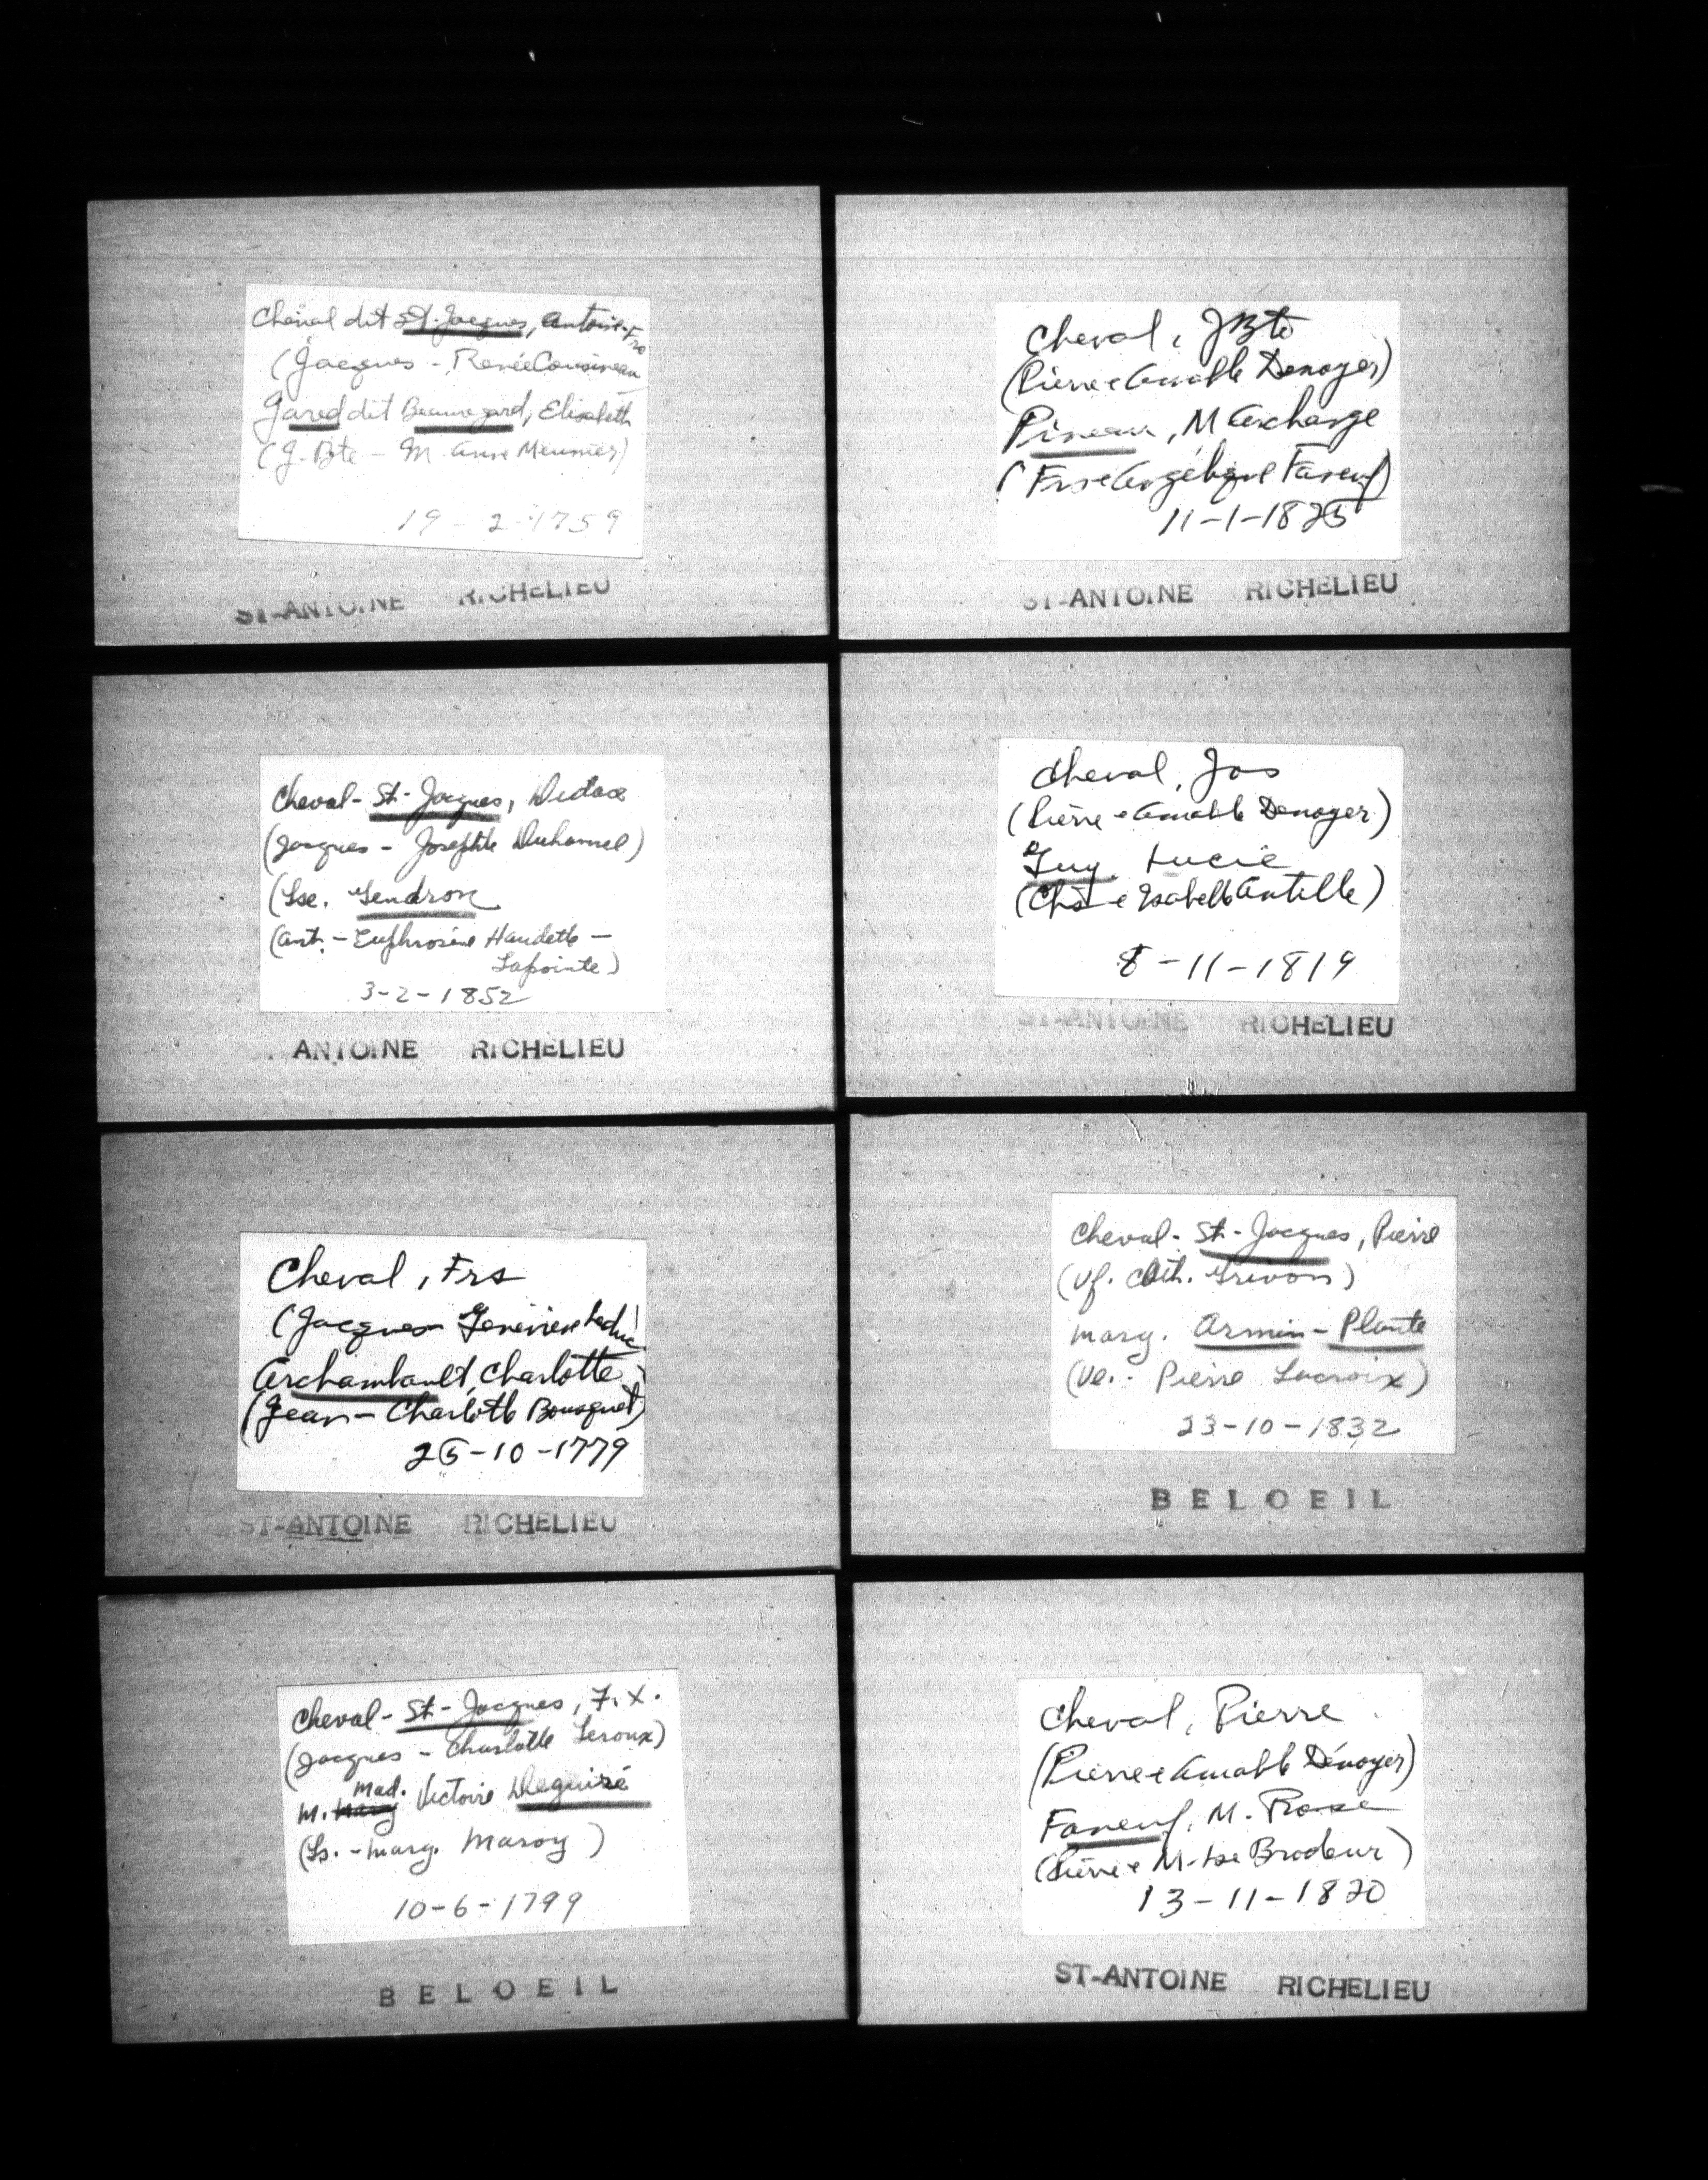 Cheval dit St-Jacques, Antoine-Frs
(Jacques - Renée Cousineau
Jared dit Beauregard, Elisabeth
(J. Bte - M. Anne Meunier)
19-2-1759
ST-ANTOINE RICHELIEU
Cheval-St-Jacques, Didace
(Jacques - Josephte Duhamel)
(Lse. Gendron
(Ant. - Euphrosine Handette -
Lapointe)
3-2-1852
ANTOINE RICHELIEU
Cheval, Frs
(Jacques - Geneviève Leduc)
Archambault, Charlotte
(Jean - Charlotte Bousquet)
25-10-1779
ST-ANTOINE RICHELIEU
Cheval-St-Jacques, F.X.
(Jacques - Charlotte Leroux)
Mad.
M. Marg Victoire Deguire
(Ls. - Marg. Maroy)
10-6-1799
BELOEIL
Cheval, J Bte
(Pierre e Amable Denoyer)
Pineau, M Archange
(Frs e Angélique Faneuf)
11-1-1825
ST-ANTOINE RICHELIEU
Cheval, Jos
(Pierre e Amable Denoyer)
Guy, Lucie
(Chs e Isabelle Antille)
8-11-1819
ST-ANTOINE RICHELIEU
Cheval-St-Jacques, Pierre
(Vf. Cath. Grivon)
Marg. Armin-Plante
(Ve. - Pierre Lacroix)
23-10-1832
BELOEIL
Cheval, Pierre
(Pierre e Amable Dénoyer)
Faneuf, M. Rose
(Pierre e M-Lse Brodeur)
13-11-1820
ST-ANTOINE RICHELIEU